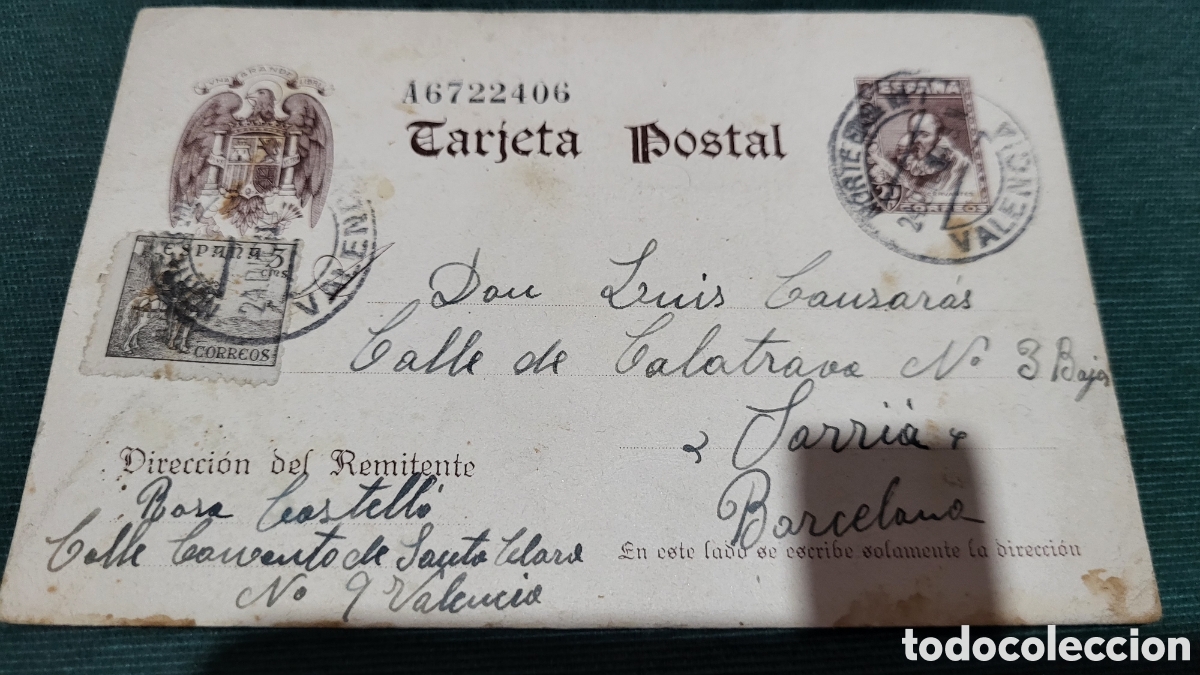 UNA GRANDE LIBRE
A6722406
Tarjeta Postal
ESPAÑA
20
CORREOS
VALENCIA
ESPAÑA 5
CTS
CORREOS
VALEN
Don Luis Cansarás
Calle de Calatrava Nº 3 Bajos
Sarriá
Barcelona
Dirección del Remitente
Rosa Castelló
Calle Convento de Santa Clara
Nº 9 Valencia
En este lado se escribe solamente la dirección
todocoleccion